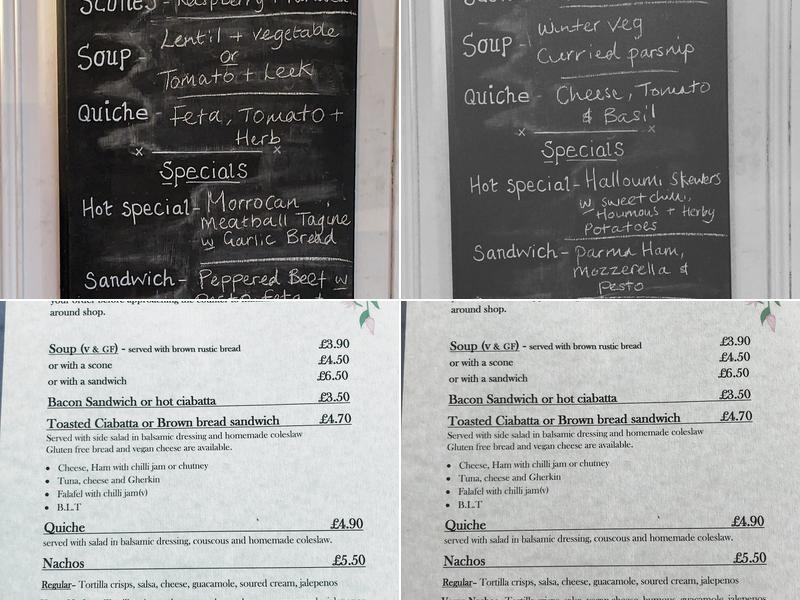 Scones - Raspberry +
Soup - Lentil + vegetable
or
Tomato + Leek
Quiche - Feta, Tomato +
Herb
x x
Specials
Hot special - Morrocan
Meatball Tagine
w Garlic Bread
Sandwich - Peppered Beef w
Pesto Feta +
Soup - Winter Veg
Curried parsnip
Quiche - Cheese, Tomato
& Basil
x x
Specials
Hot special - Halloumi Skewers
w sweet chilli,
Houmous + Herby
Potatoes
Sandwich - Parma Ham,
Mozzerella &
Pesto
your order before approaching the counter to
around shop.
Soup (v & GF) - served with brown rustic bread £3.90
or with a scone £4.50
or with a sandwich £6.50
Bacon Sandwich or hot ciabatta £3.50
Toasted Ciabatta or Brown bread sandwich £4.70
Served with side salad in balsamic dressing and homemade coleslaw
Gluten free bread and vegan cheese are available.
• Cheese, Ham with chilli jam or chutney
• Tuna, cheese and Gherkin
• Falafel with chilli jam(v)
• B.L.T
Quiche £4.90
served with salad in balsamic dressing, couscous and homemade coleslaw.
Nachos £5.50
Regular- Tortilla crisps, salsa, cheese, guacamole, soured cream, jalepenos
around shop.
Soup (v & GF) - served with brown rustic bread £3.90
or with a scone £4.50
or with a sandwich £6.50
Bacon Sandwich or hot ciabatta £3.50
Toasted Ciabatta or Brown bread sandwich £4.70
Served with side salad in balsamic dressing and homemade coleslaw
Gluten free bread and vegan cheese are available.
• Cheese, Ham with chilli jam or chutney
• Tuna, cheese and Gherkin
• Falafel with chilli jam(v)
• B.L.T
Quiche £4.90
served with salad in balsamic dressing, couscous and homemade coleslaw.
Nachos £5.50
Regular- Tortilla crisps, salsa, cheese, guacamole, soured cream, jalepenos